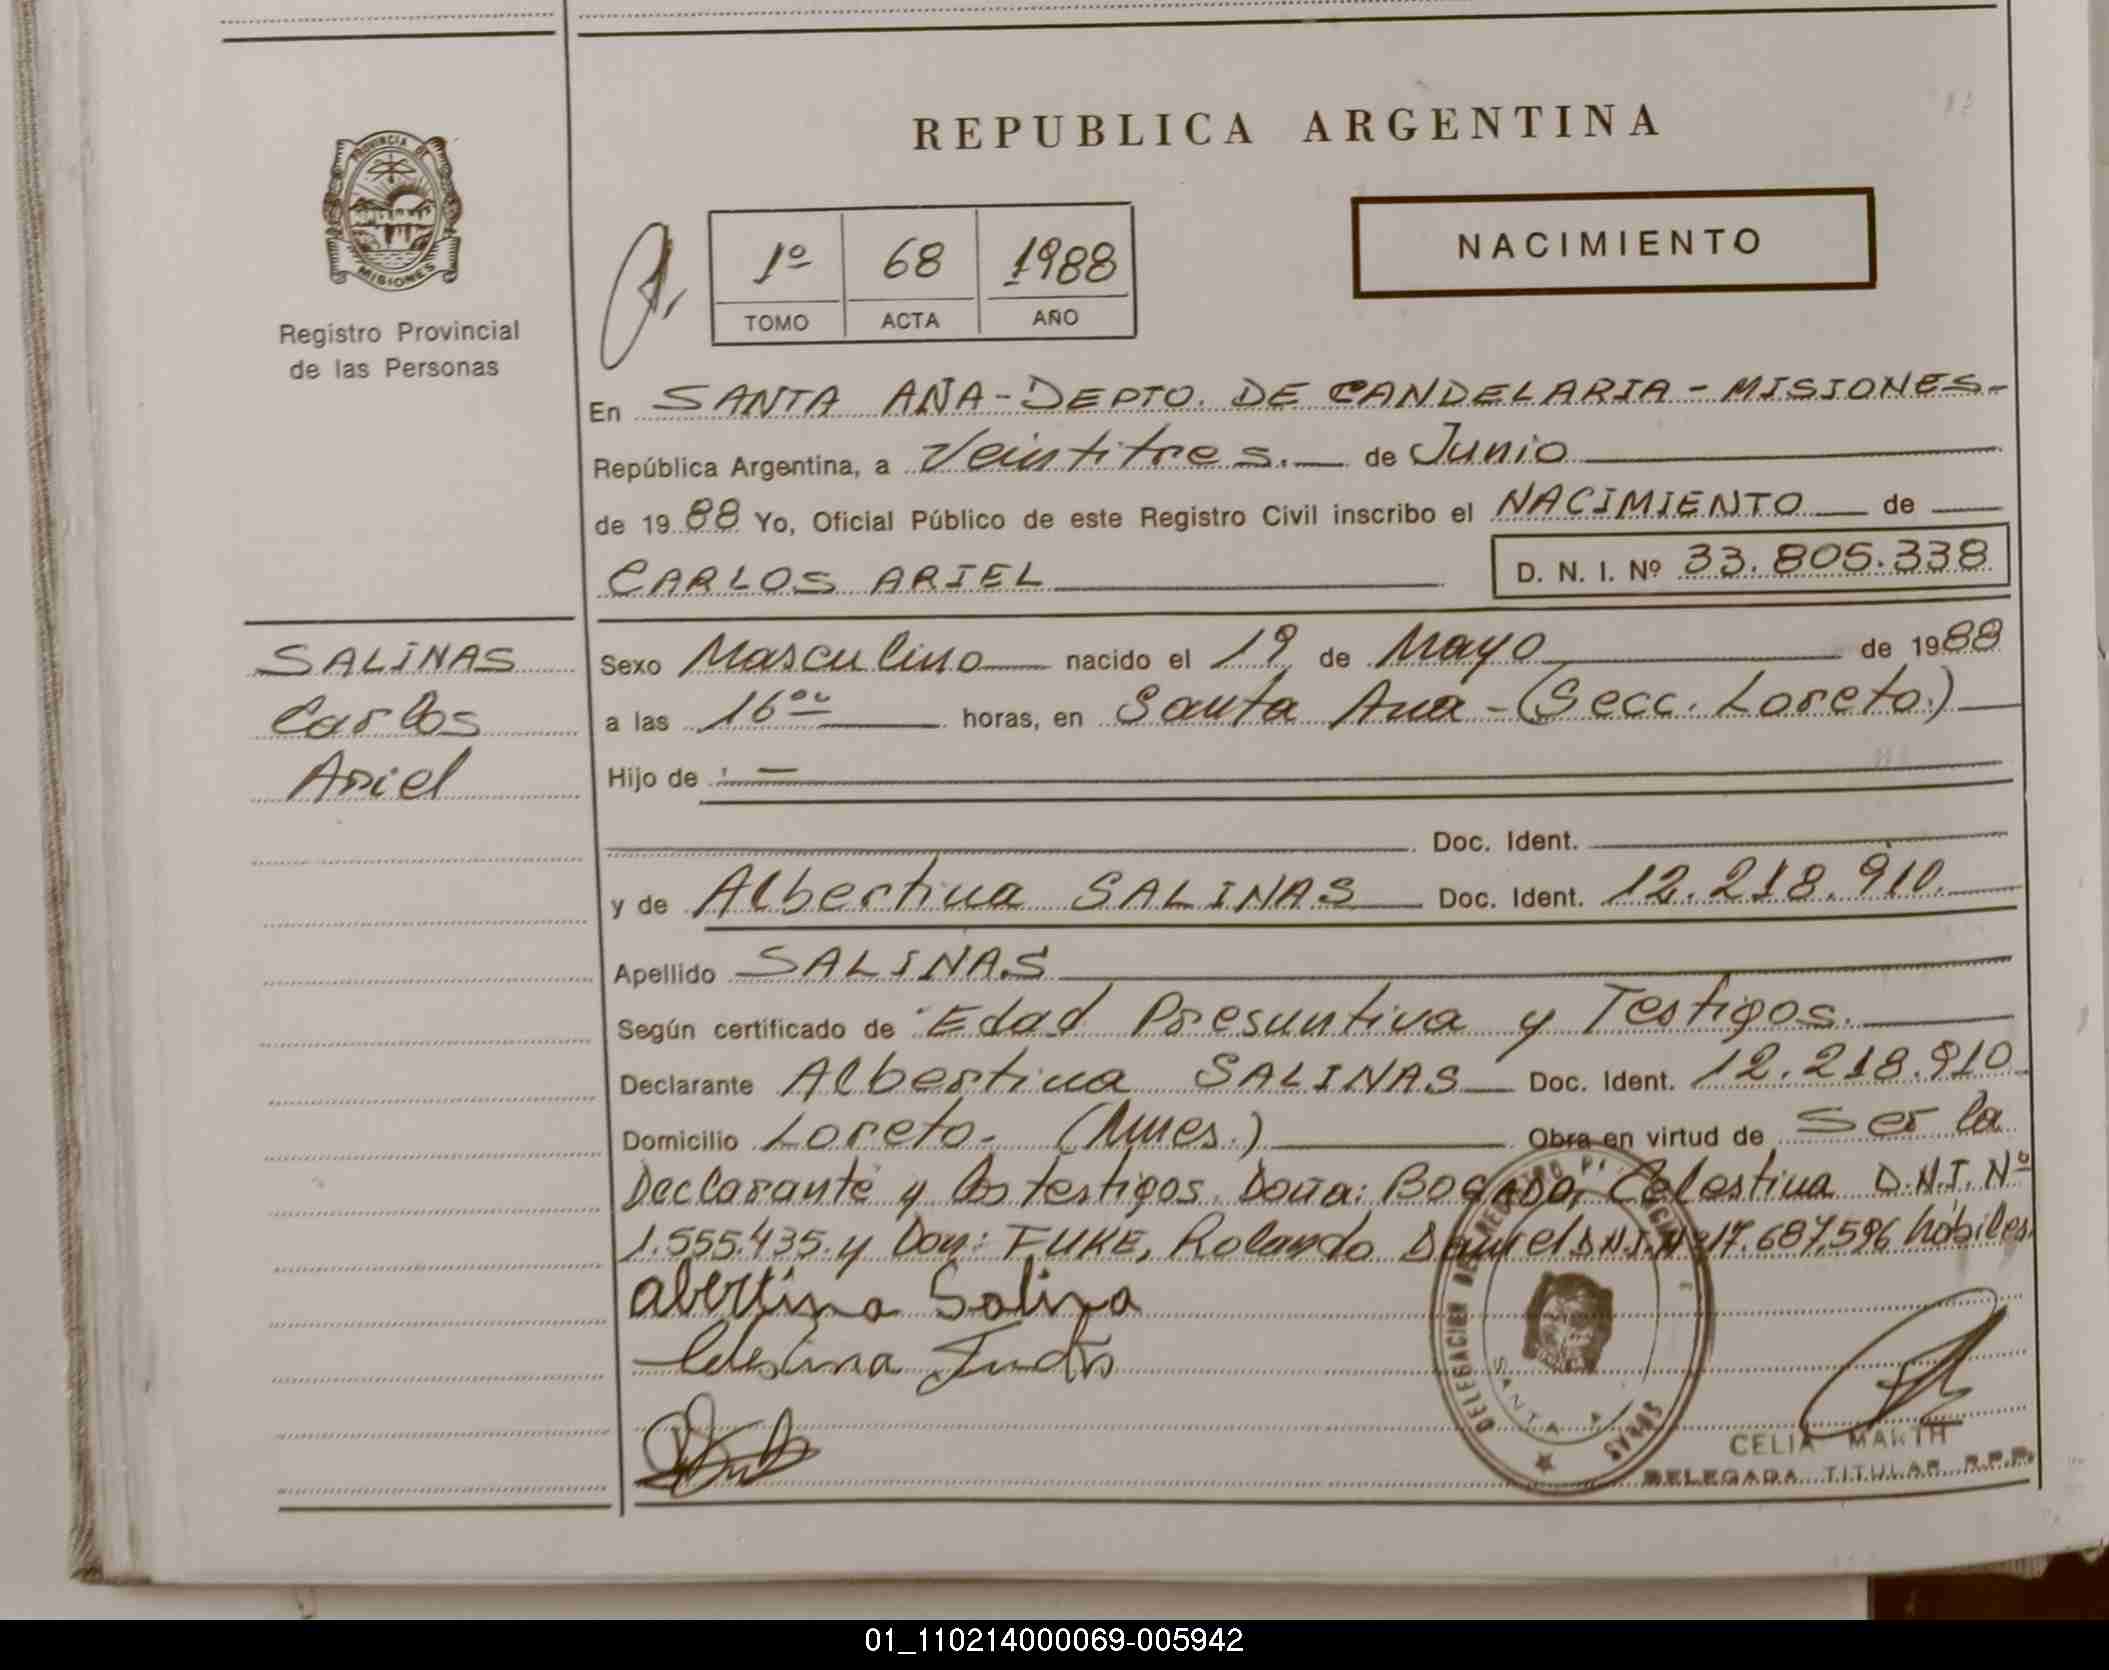 REPUBLICA ARGENTINA
PROVINCIA DE
MISIONES
Registro Provincial
de las Personas
1º 68 1988
TOMO ACTA AÑO
NACIMIENTO
En SANTA ANA-DEPTO. DE CANDELARIA - MISIONES.-
República Argentina, a Veintitres. de Junio
de 1988 Yo, Oficial Público de este Registro Civil inscribo el NACIMIENTO de
CARLOS ARIEL D. N. I. Nº 33.805.338
SALINAS
Carlos
Ariel
Sexo Masculino nacido el 19 de Mayo de 1988
a las 16 ºº horas, en Santa Ana - (Secc. Loreto.)
Hijo de
Doc. Ident.
y de Albertina SALINAS Doc. Ident. 12.218.910.
Apellido SALINAS
Según certificado de Edad Presuntiva y Testigos.
Declarante Albertina SALINAS Doc. Ident. 12.218.910
Domicilio Loreto. (Mnes.) Obra en virtud de Ser la
Declarante y los testigos. Doña: BOGADO, Celestina D.N.I. Nº
1.555.435. y Don: FUKE, Rolando Daniel D.N.I. Nº 17.687.596 hábiles.
abertina Salina
CELIA MARTH
DELEGADA TITULAR R.P.P.
01_110214000069-005942